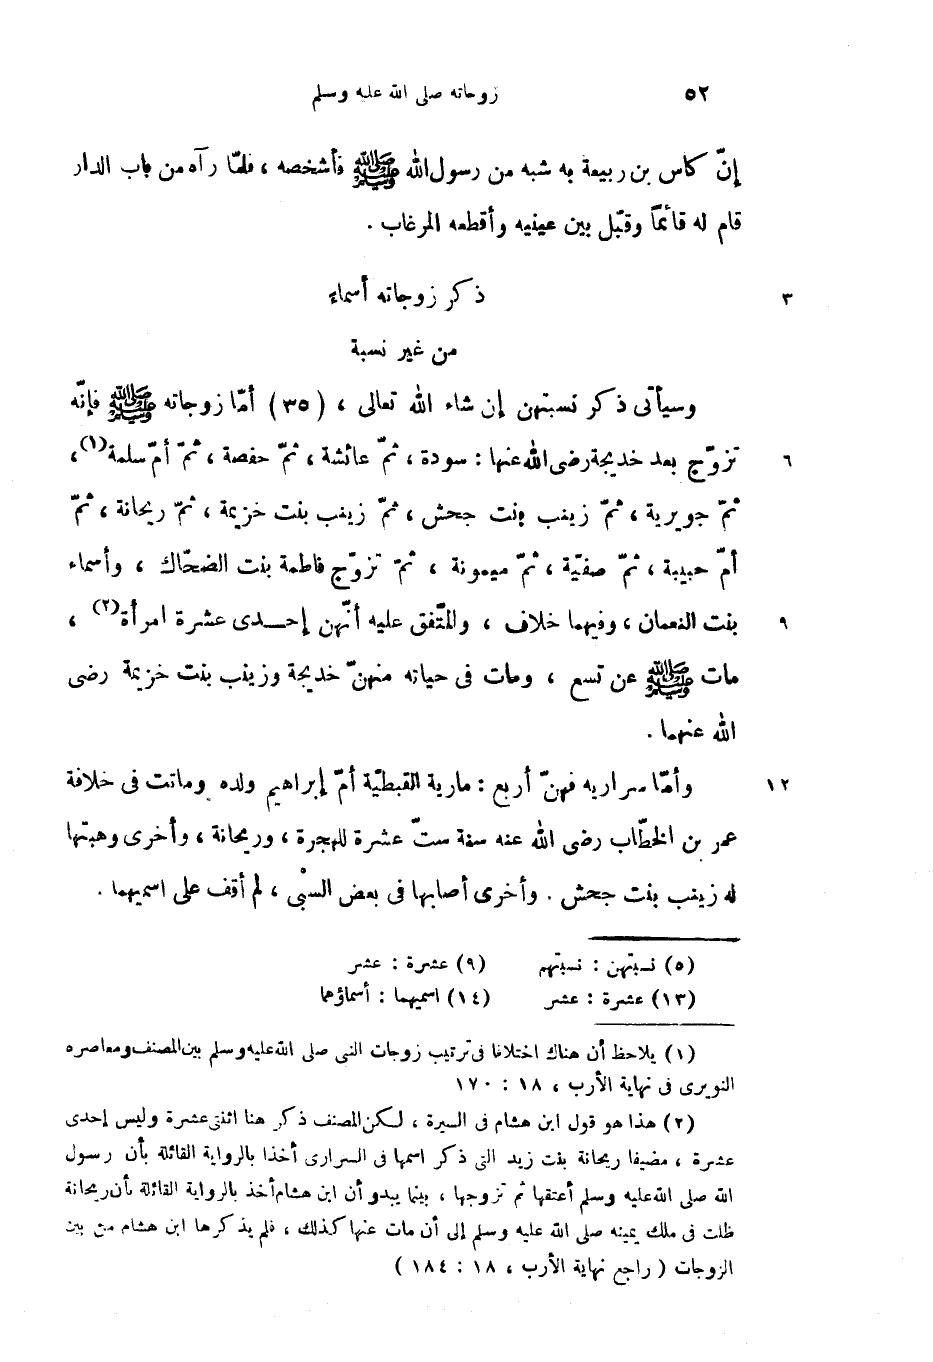 ٥٢ زوجاته صلى الله عليه وسلم
إنّ كاس بن ربيعة به شبه من رسول الله ﷺ فأشخصه ، فلمّا رآه من باب الدار
قام له قائمًا وقبّل بين عينيه وأقطعه المرغاب .
٣ ذكر زوجاته أسماء
من غير نسبة
وسيأتى ذكر نسبتهن إن شاء الله تعالى ، (٣٥) أمّا زوجاته ﷺ فإنّه
٦ تزوّج بعد خديجة رضى الله عنها : سودة ، ثمّ عائشة ، ثمّ حفصة ، ثمّ أمّ سلمة(١) ،
ثمّ جويرية ، ثمّ زينب بنت جحش ، ثمّ زينب بنت خزيمة ، ثمّ ريحانة ، ثمّ
أمّ حبيبة ، ثمّ صفيّة ، ثمّ ميمونة ، ثمّ تزوّج فاطمة بنت الضحّاك ، وأسماء
٩ بنت النعمان ، وفيهما خلاف ، والمتّفق عليه أنّهن إحـدى عشرة امرأة(٢) ،
مات ﷺ عن تسع ، ومات فى حياته منهنّ خديجة وزينب بنت خزيمة رضى
الله عنهما .
١٢ وأمّا سراريه فهنّ أربع : مارية القبطيّة أمّ إبراهيم ولده وماتت فى خلافة
عمر بن الخطّاب رضى الله عنه سنة ستّ عشرة للهجرة ، وريحانة ، وأخرى وهبتها
له زينب بنت جحش . وأخرى أصابها فى بعض السبْى ، لم أقف على اسميهما .
(٥) نسبتّهن : نسبتّهم (٩) عشرة : عشر
(١٣) عشرة : عشر (١٤) اسميهما : أسماؤهما
(١) يلاحظ أن هناك اختلافا فى ترتيب زوجات النبى صلى الله عليه وسلم بين المصنف ومعاصره
النويرى فى نهاية الأرب ، ١٨ : ١٧٠
(٢) هذا هو قول ابن هشام فى السيرة ، لكن المصنف ذكر هنا اثنتى عشرة وليس إحدى
عشرة ، مضيفا ريحانة بنت زيد التى ذكر اسمها فى السرارى أخذا بالرواية القائلة بأن رسول
الله صلى الله عليه وسلم أعتقها ثم تزوجها ، بينما يبدو أن ابن هشام أخذ بالرواية القائلة بأن ريحانة
ظلت فى ملك يمينه صلى الله عليه وسلم إلى أن مات عنها كذلك ، فلم يذكرها ابن هشام من بين
الزوجات ( راجع نهاية الأرب ، ١٨ : ١٨٤ )